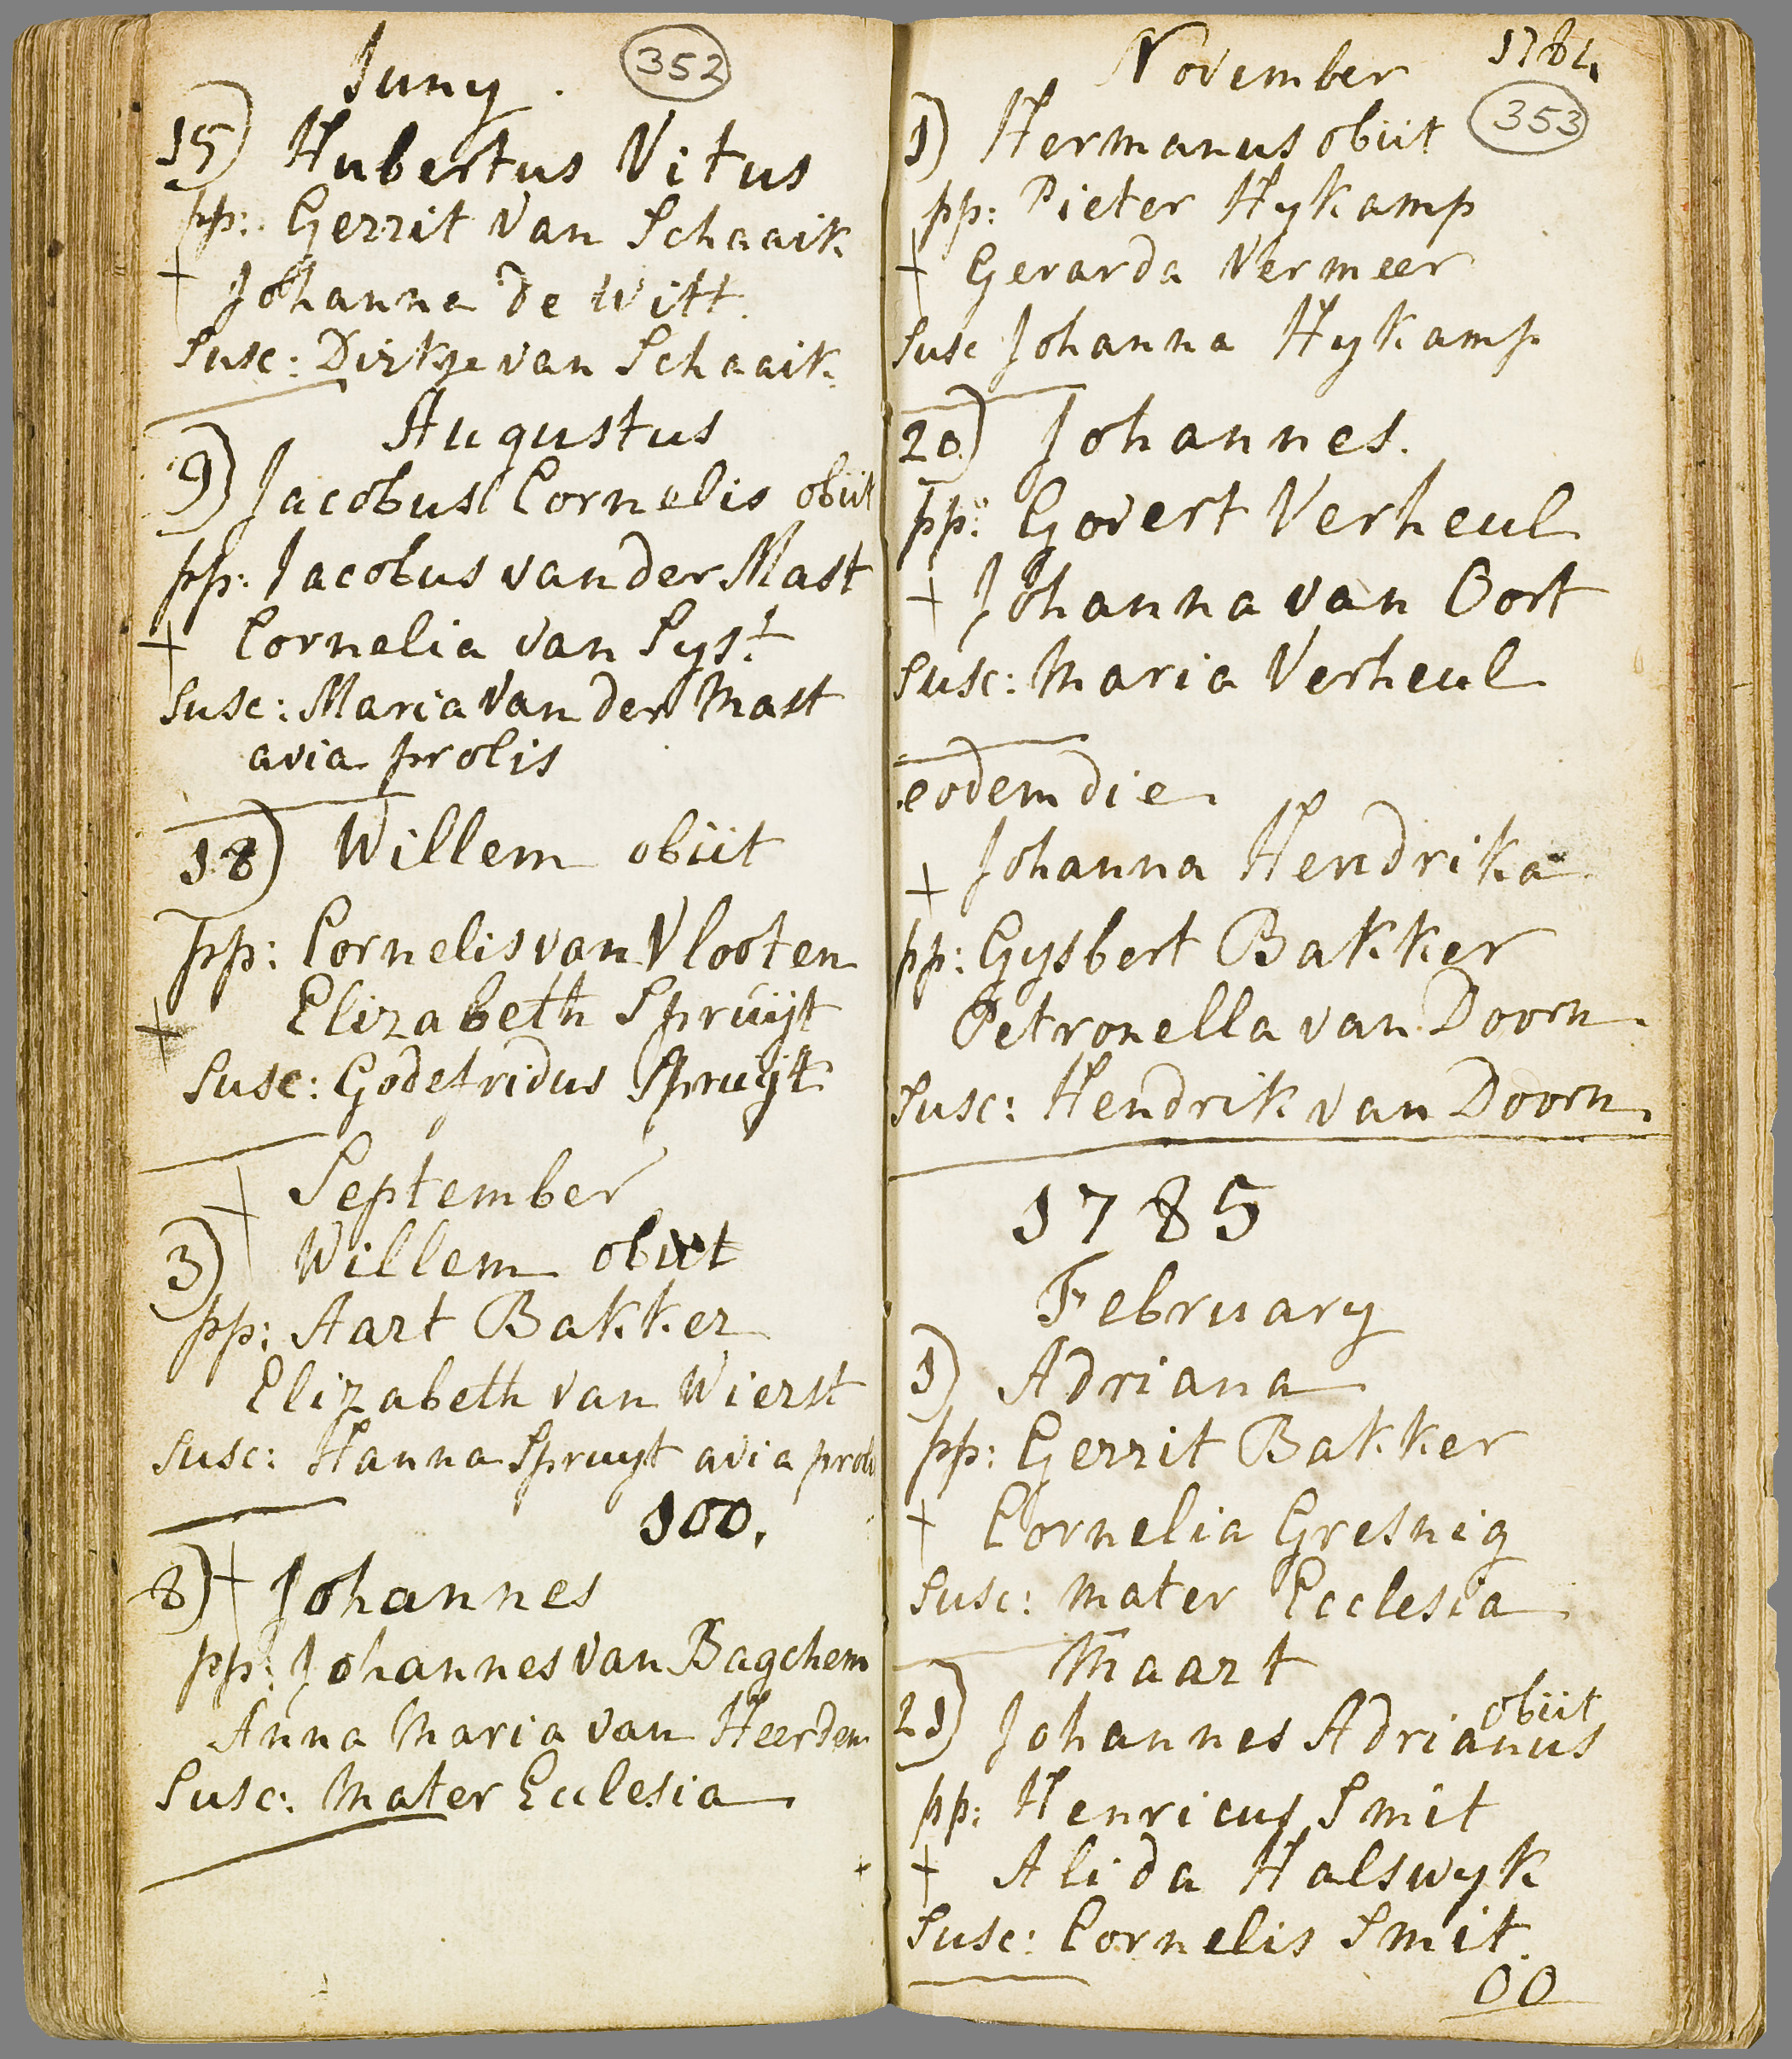 Juny. 352
15) Hubertus Vitus
pp: Gerrit van Schaaik
+ Johanna de Witt.
Susc: Dirkje van Schaaik
Augustus
9) Jacobus Cornelis obiit
pp: Jacobus van der Mast
+ Cornelia van Syst
Susc: Maria van der Mast
avia prolis
18) Willem obiit
pp: Cornelis van Vlooten
+ Elizabeth Spruijt
Susc: Godefridus Spruijt
+ September
3) Willem obiit
pp: Aart Bakker
Elizabeth van Wierst
Susc: Hanna Spruyt avia prolis
100.
8) + Johannes
pp: Johannes van Bagchem
Anna Maria van Heerden
Susc: Mater Ecclesia
November 1784
353
1) Hermanus obiit
pp: Pieter Hykamp
+ Gerarda Vermeer
Susc Johanna Hykamp
20) Johannes.
pp: Govert Verheul
+ Johanna van Oort
Susc: Maria Verheul
eodem die
+ Johanna Hendrika
pp: Gysbert Bakker
Petronella van Doorn.
Susc: Hendrik van Doorn.
1785
February
1) Adriana
pp: Gerrit Bakker
+ Cornelia Gresnig
Susc: Mater Ecclesia
Maart
obiit
21) Johannes Adrianus
pp: Henricus Smit
+ Alida Halswyk
Susc: Cornelis Smit.
00